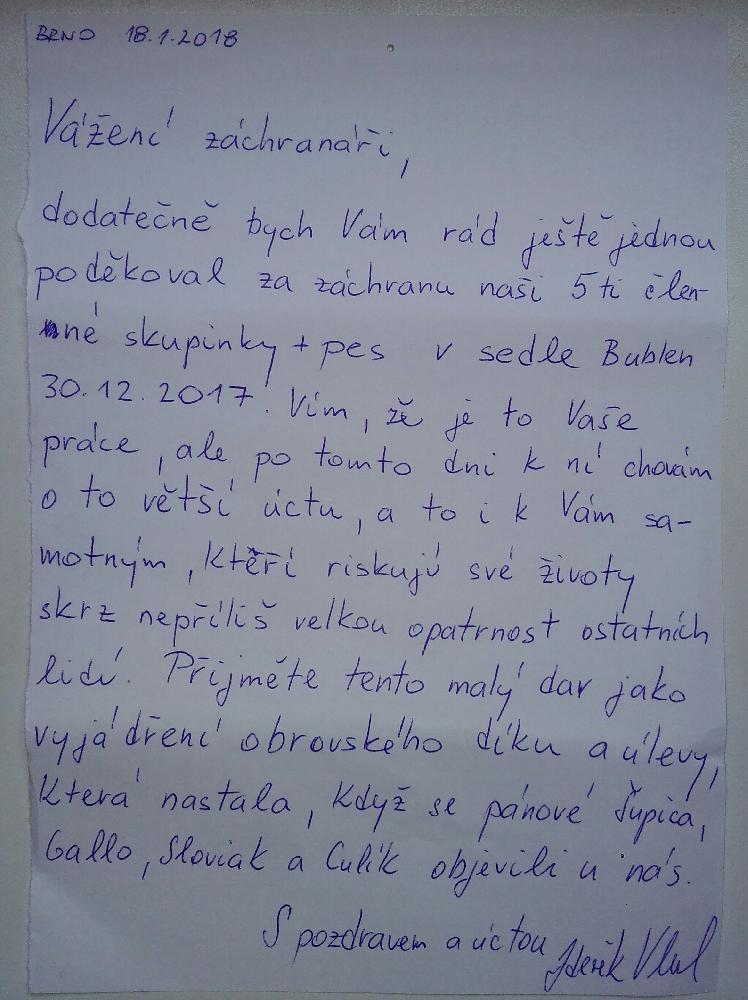 BRNO 18.1.2018
Vážení záchranáři,
dodatečně bych Vám rád ještě jednou
poděkoval za záchranu naši 5ti člen-
né skupinky + pes v sedle Bublen
30.12.2017. Vím, že je to Vaše
práce, ale po tomto dni k ní chovám
o to větší úctu, a to i k Vám sa-
motným, kteří riskují své životy
skrz nepříliš velkou opatrnost ostatních
lidí. Přijměte tento malý dar jako
vyjádření obrovského díku a úlevy,
která nastala, když se pánové Ťupica,
Gallo, Sloviak a Culík objevili u nás.
S pozdravem a úctou Zdeněk